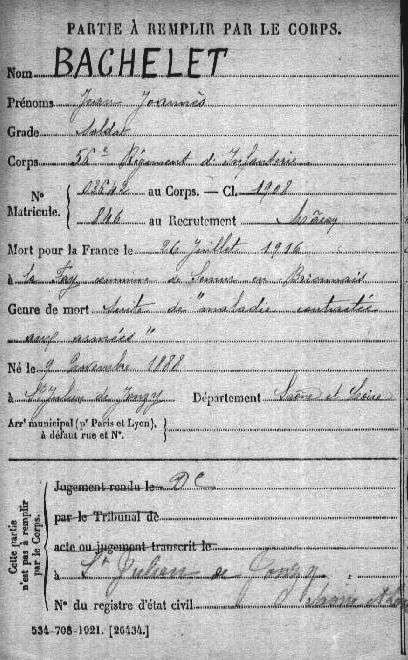 PARTIE À REMPLIR PAR LE CORPS.
Nom BACHELET
Prénoms Jean Joannès
Grade Soldat
Corps 56e Régiment d'Infanterie
No Matricule. 02642 au Corps. — Cl. 1908
846 au Recrutement Mâcon
Mort pour la France le 26 Juillet 1916
à commune de Semur en Brionnais
Genre de mort Suite de "maladie contractée
aux armées"
Né le 9 1888
à St Julien de Jonzy Département Saône et Loire
Arrt municipal (pr Paris et Lyon),
à défaut rue et No.
Cette partie
n'est pas à remplir
par le Corps.
Jugement rendu le DC
par le Tribunal de
acte ou jugement transcrit le
à St Julien de Jonzy
No du registre d'état civil
534-708-1921. [26434.]